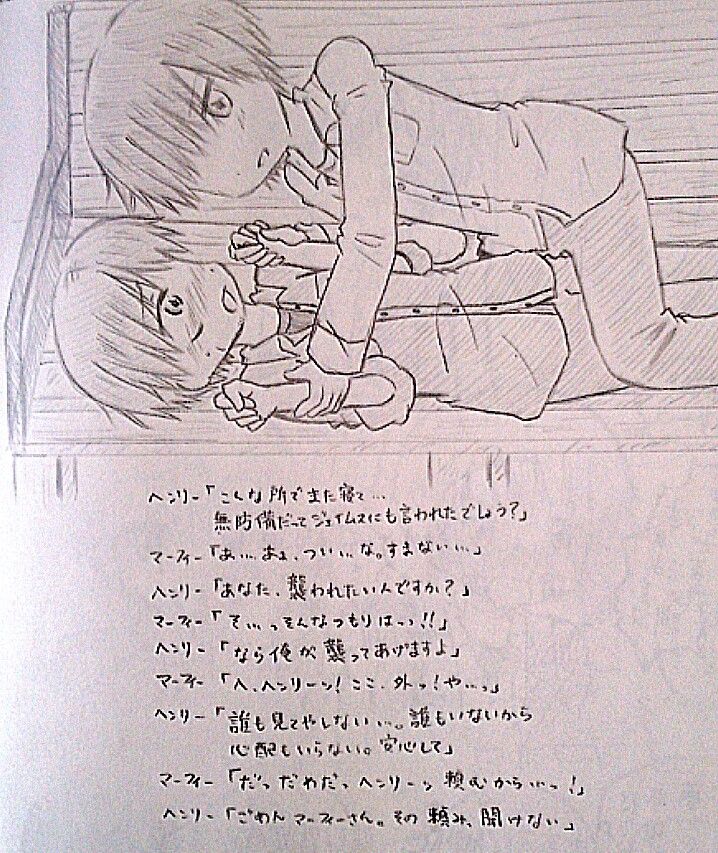 ヘンリー「こんな所でまた寝て…
無防備だってジェイムスにも言われたでしょう?」
マーフィー「あ……あぁ、つい……な。すまない……」
ヘンリー「あなた、襲われたいんですか?」
マーフィー「そ……っそんなつもりはっっ!!」
ヘンリー「なら俺が襲ってあげますよ」
マーフィー「ヘ、ヘンリーッ!ここ、外ッ!や…っ」
ヘンリー「誰も見てやしない…。誰もいないから
心配もいらない。安心して」
マーフィー「だっだめだっヘンリーッ頼むから…っ!」
ヘンリー「ごめんマーフィーさん。その頼み、聞けない」